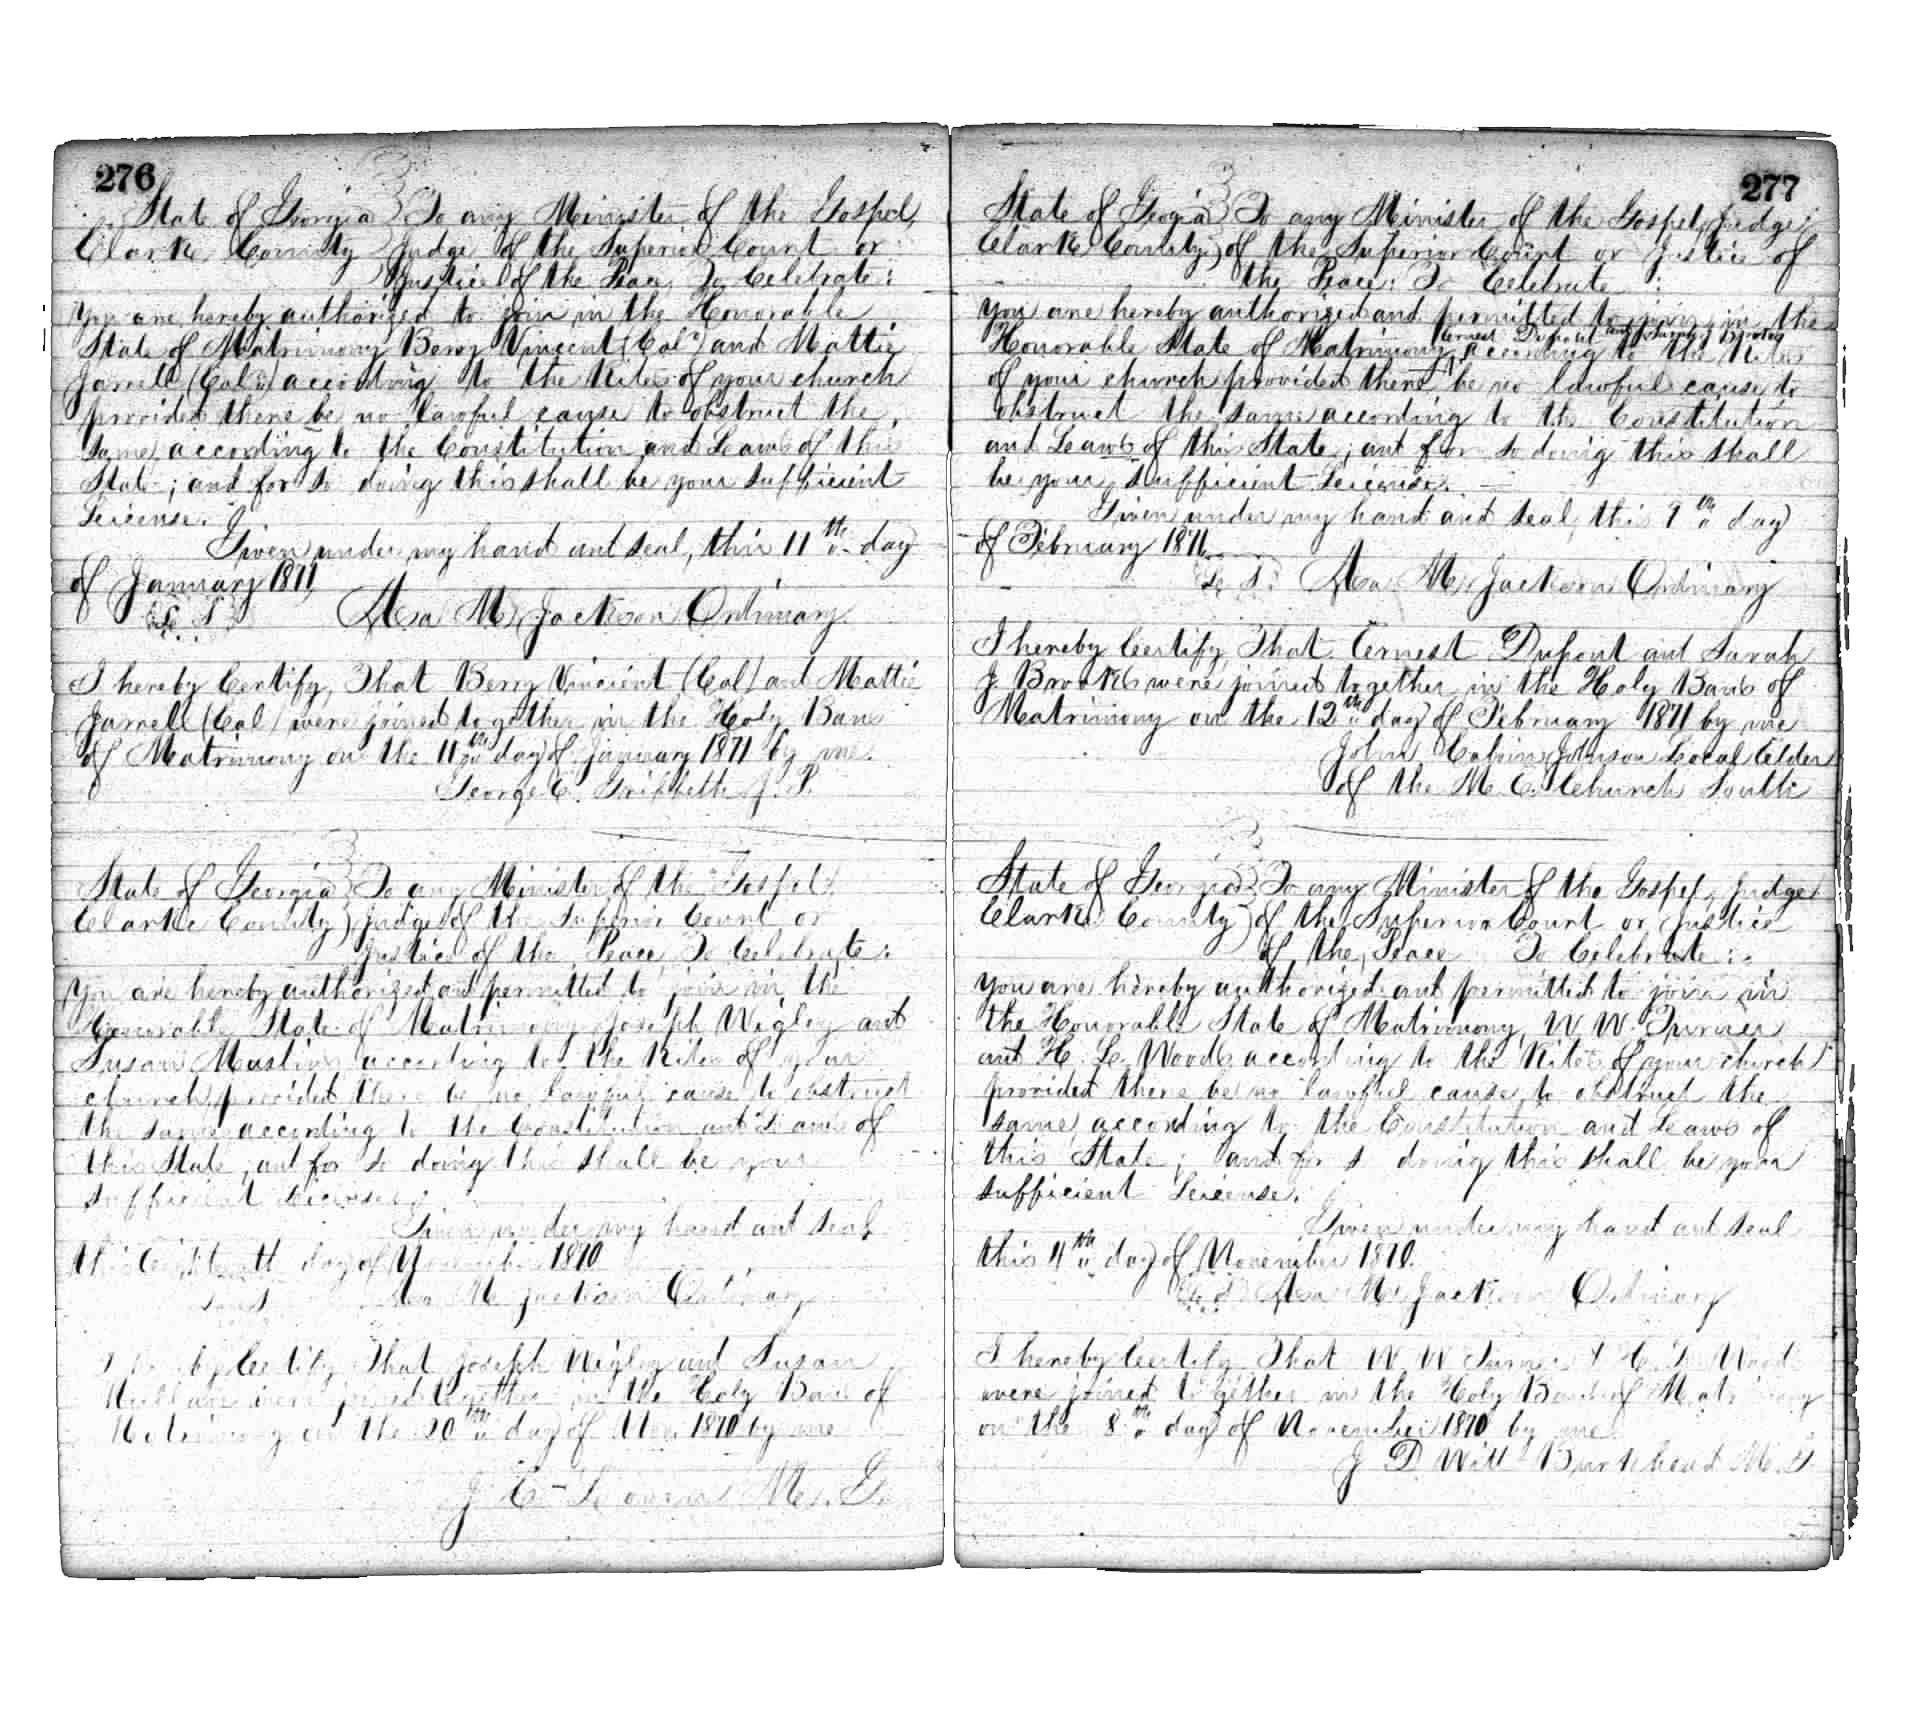 276
State of Georgia } To any Minister of the Gospel,
Clarke County Judge of the Superior Court or
Justice of the Peace, To Celebrate:
You are hereby authorized to join in the Honorable
State of Matrimony Berry Vincent (Cold) and Mattie
Jarrell (Cold) according to the Rites of your church
provided there be no lawful cause to obstruct the
same, according to the Constitution and Laws of this
State; and for so doing this shall be your sufficient
Leicense.
Given under my hand and seal, this 11th day
of January 1871
L. S. Asa M. Jackson Ordinary
I hereby Certify, That Berry Vincient (Col) and Mattie
Jarrell (Col) were joined together in the Holy Bans
of Matrimony on the 11th day of January 1871 by me.
George C. Griffeth J. P.
State of Georgia } To any Minister of the Gospel,
Clarke County } Judge of the Superior Court or
Justice of the Peace, To Celebrate:
You are hereby authorized and permitted to join in the
Honorable State of Matrimony Joseph Wigley and
Susan according to the Rites of your
church provided there be no lawful cause to obstruct
the same according to the Constitution and Laws of
this State, and for so doing this shall be your
sufficient Leicense.
Given under my hand and seal,
this day of November 1870
Asa M. Jackson Ordinary
I hereby Certify That Joseph Wigley and Susan
were joined together in the Holy Bans of
Matrimony on the 20th day of Nov. 1870 by me
J. C. M. G.
277
State of Geogia } To any Minister of the Gospel, Judge
Clarke County } of the Superior Court or Justice of
the Peace: To Celebrate:
You are hereby authorized and permitted to join in the
Ernest Dupont and Sarah J Brooks
Honorable State of Matrimony, according to the Rites
of your church provided there be no lawful cause to
obstruct the same according to the Constitution
and Laws of this State; and for so doing this shall
be your sufficient Leicense.
Given under my hand and seal, this 9th day
of February 1871
L. S. Asa M. Jackson Ordinary
I hereby Certify That Ernest Dupont and Sarah
J. Brooks were joined together in the Holy Bans of
Matrimony on the 12th day of February 1871 by me
John Calvin Johnson Local Elder
of the M. E. Church South
State of Georgia } To any Minister of the Gospel, Judge
Clarke County } of the Superior Court or Justice
of the Peace To Celebrate:
You are hereby authorized and permitted to join in
the Honorable State of Matrimony, W. W. Turner
and H. L. Woods according to the Rites of your church
provided there be no lawful cause to obstruct the
same, according to the Constitution and Laws of
this State; and for so doing this shall be your
sufficient Leicense.
Given under my hand and seal
this 4th day of November 1870.
L. S. Asa M. Jackson Ordinary
I hereby Certify That W. W. Turner & H. L. Woods
were joined together in the Holy Bans of Matrimony
on the 8th day of November 1870 by me
J. D. Witt Burkhead M. G.